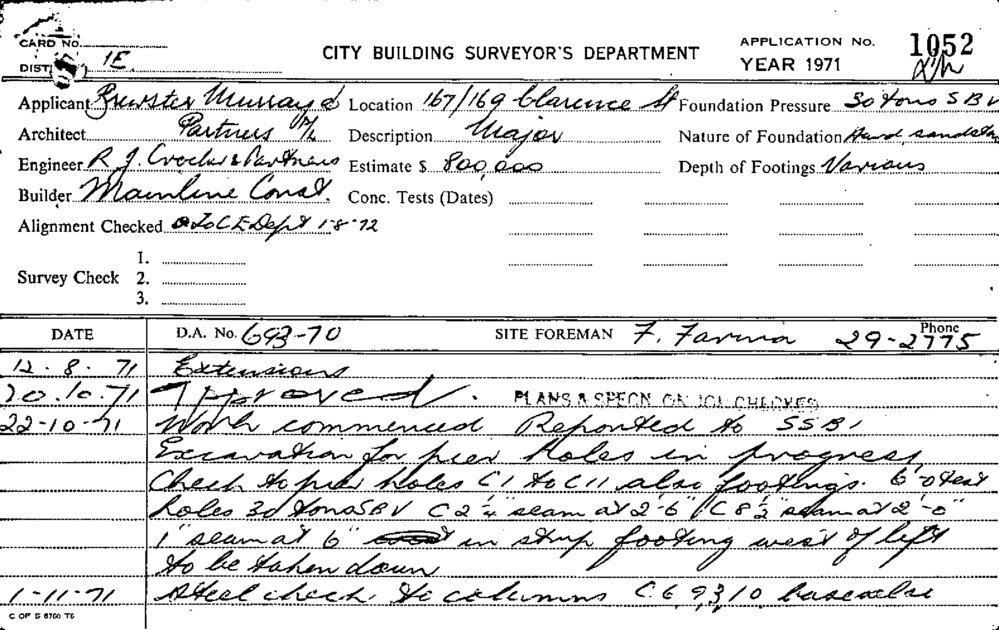 CARD No.
DIST. 1E.
CITY BUILDING SURVEYOR'S DEPARTMENT
APPLICATION No. 1052
YEAR 1971
Applicant Brewster Murray & Location 167/169 Clarence St Foundation Pressure 30 tons S B V
Architect Partners P/L Description Major Nature of Foundation Hard sandstn
Engineer R J. Crocker & Partners Estimate $ 800,000 Depth of Footings Various
Builder Mainline Const. Conc. Tests (Dates)
Alignment Checked To C E Dept 1-8-72
1.
Survey Check 2.
3.
DATE D.A. No. 693-70 SITE FOREMAN F. Phone 29-2775
12.8.71 Extensions
20.10.71 Approved. PLANS & SPECN ON JOB CHECKED
22-10-71 Work commenced Reported to SSB
Excavation for pier holes in progress
Check to pier holes C1 to C11 also footings. 6'-0 test
holes 30 tons SBV C2 ¼" seam at 2'-6" C8 ½" seam at 2'-0
1" seam at 6" in strip footing west of lift
to be taken down
1-11-71 Steel check to columns C 6 9, 3, 10
C OF S 6760 T6